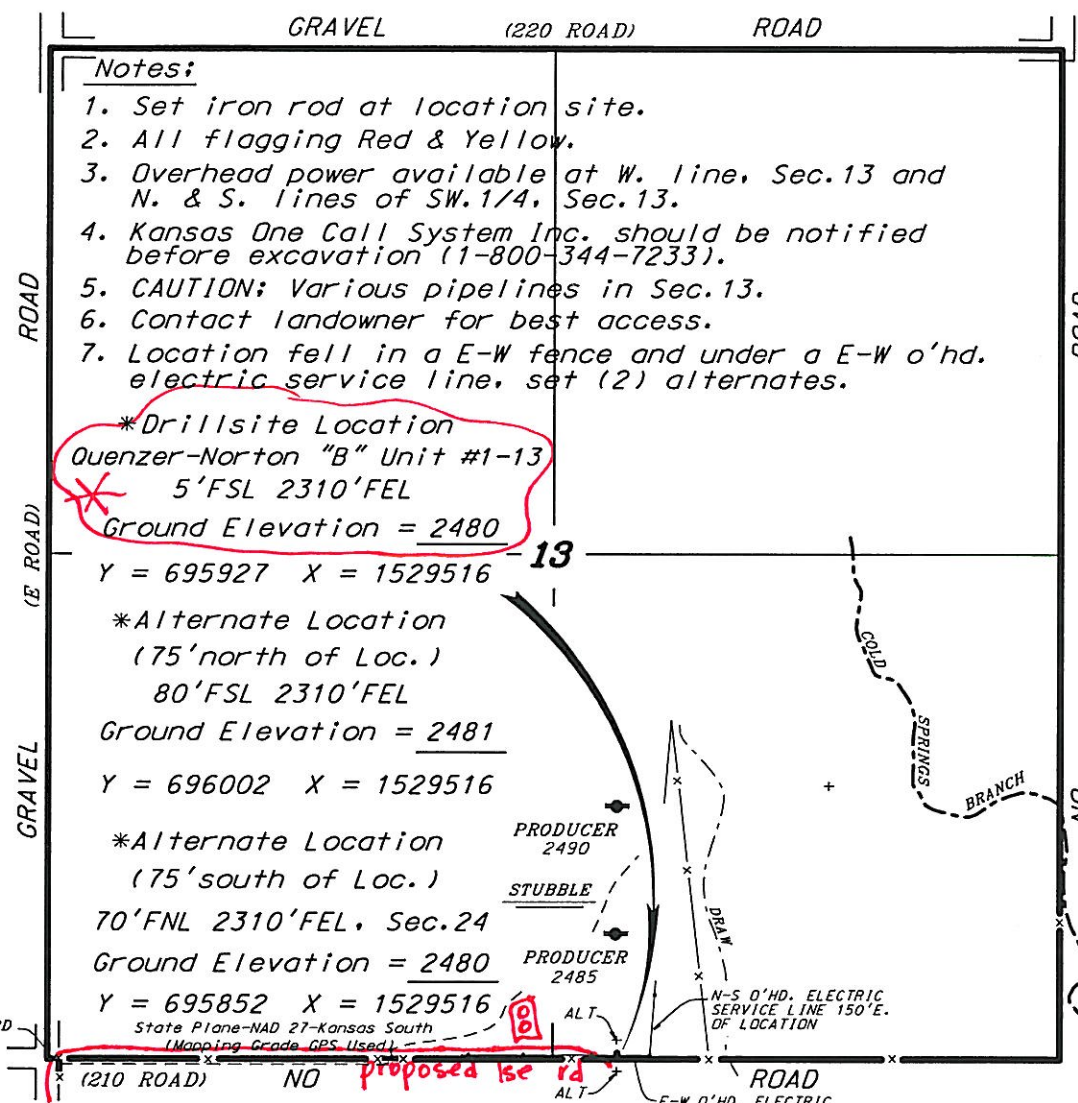 GRAVEL (220 ROAD) ROAD
Notes:
1. Set iron rod at location site.
2. All flagging Red & Yellow.
3. Overhead power available at W. line, Sec.13 and
N. & S. lines of SW.1/4, Sec.13.
4. Kansas One Call System Inc. should be notified
before excavation (1-800-344-7233).
5. CAUTION: Various pipelines in Sec.13.
6. Contact landowner for best access.
7. Location fell in a E-W fence and under a E-W o'hd.
electric service line, set (2) alternates.
ROAD
(E ROAD)
GRAVEL
*Drillsite Location
Quenzer-Norton "B" Unit #1-13
5'FSL 2310'FEL
Ground Elevation = 2480
Y = 695927 X = 1529516
13
*Alternate Location
(75'north of Loc.)
80'FSL 2310'FEL
Ground Elevation = 2481
Y = 696002 X = 1529516
*Alternate Location
(75'south of Loc.)
70'FNL 2310'FEL, Sec.24
Ground Elevation = 2480
Y = 695852 X = 1529516
State Plane-NAD 27-Kansas South
(Mapping Grade GPS Used)
COLD
SPRINGS
BRANCH
PRODUCER
2490
STUBBLE
PRODUCER
2485
DRAW
ALT
N-S O'HD. ELECTRIC
SERVICE LINE 150'E.
OF LOCATION
(210 ROAD) NO proposed lse rd ROAD
ALT
E-W O'HD. ELECTRIC
ROAD
NO